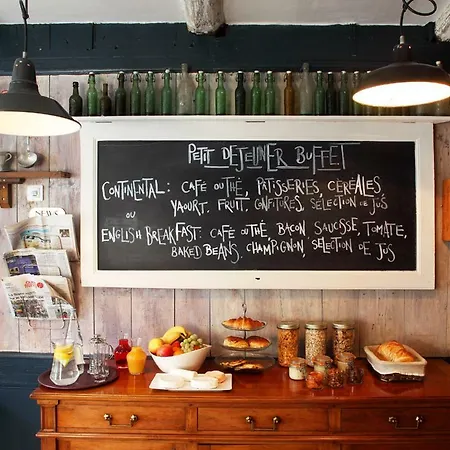 PETIT DEJEUNER BUFFET
CONTINENTAL: CAFÉ OU THÉ, PÂTISSERIES, CÉRÉALES,
YAOURT, FRUIT, CONFITURES, SÉLECTION DE JUS
OU
ENGLISH BREAKFAST: CAFÉ OU THÉ, BACON, SAUCSSE, TOMATE,
BAKED BEANS, CHAMPIGNON, SELECTION DE JUS
NEWS